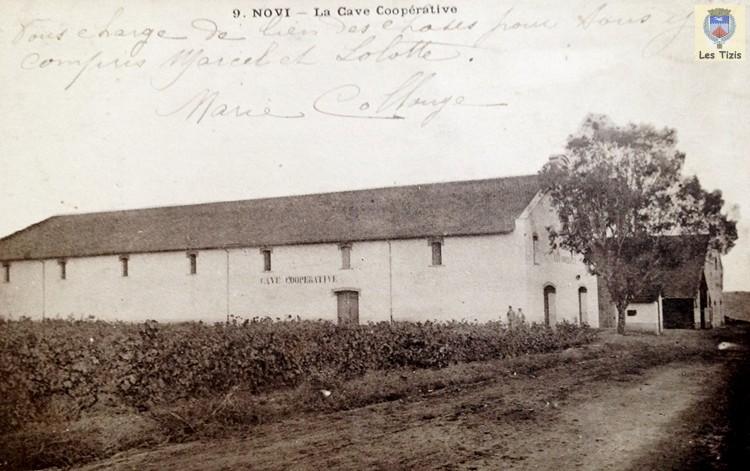 9. NOVI - La Cave Coopérative
Vous charge de bien des choses pour vous y
compris Marcel et Lolotte.
Marie Collonge.
Les Tizis
CAVE COOPERATIVE